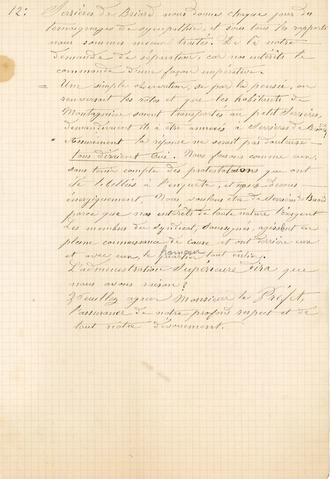 12: Serrières de Briord nous donne chaque jour des
témoignages de sympathie, et sous tous les rapports
nous sommes mieux traités. De là notre
demande de séparation, car nos intérêts le
commande d'une façon impérative.
= Une simple observation, si par la pensée, on
renversait les rôles et que les habitants de
Montagnieu soient transportés au petit Serrières,
demanderaient ils à être annexés à Serrières de Briord
Assurément la réponse ne serait pas douteuse
tous diraient Oui. Nous faisons comme eux,
sans tenir compte des protestations que ont
de libellées à l'enquête, et nous disons
énergiquement, Nous voulons être de Serrières de Briord
parce que nos intérêts de toute nature l'exigent
Les membres du syndicat, soussignés, agissent en
pleine connaissance de cause et ont derrière eux
et avec eux, le hameau tout entier.
L'administration Supérieure dira que
nous avons raison?
Veuillez agréer Monsieur le Préfet,
l'assurance de notre profond respect et de
tout notre dévouement.